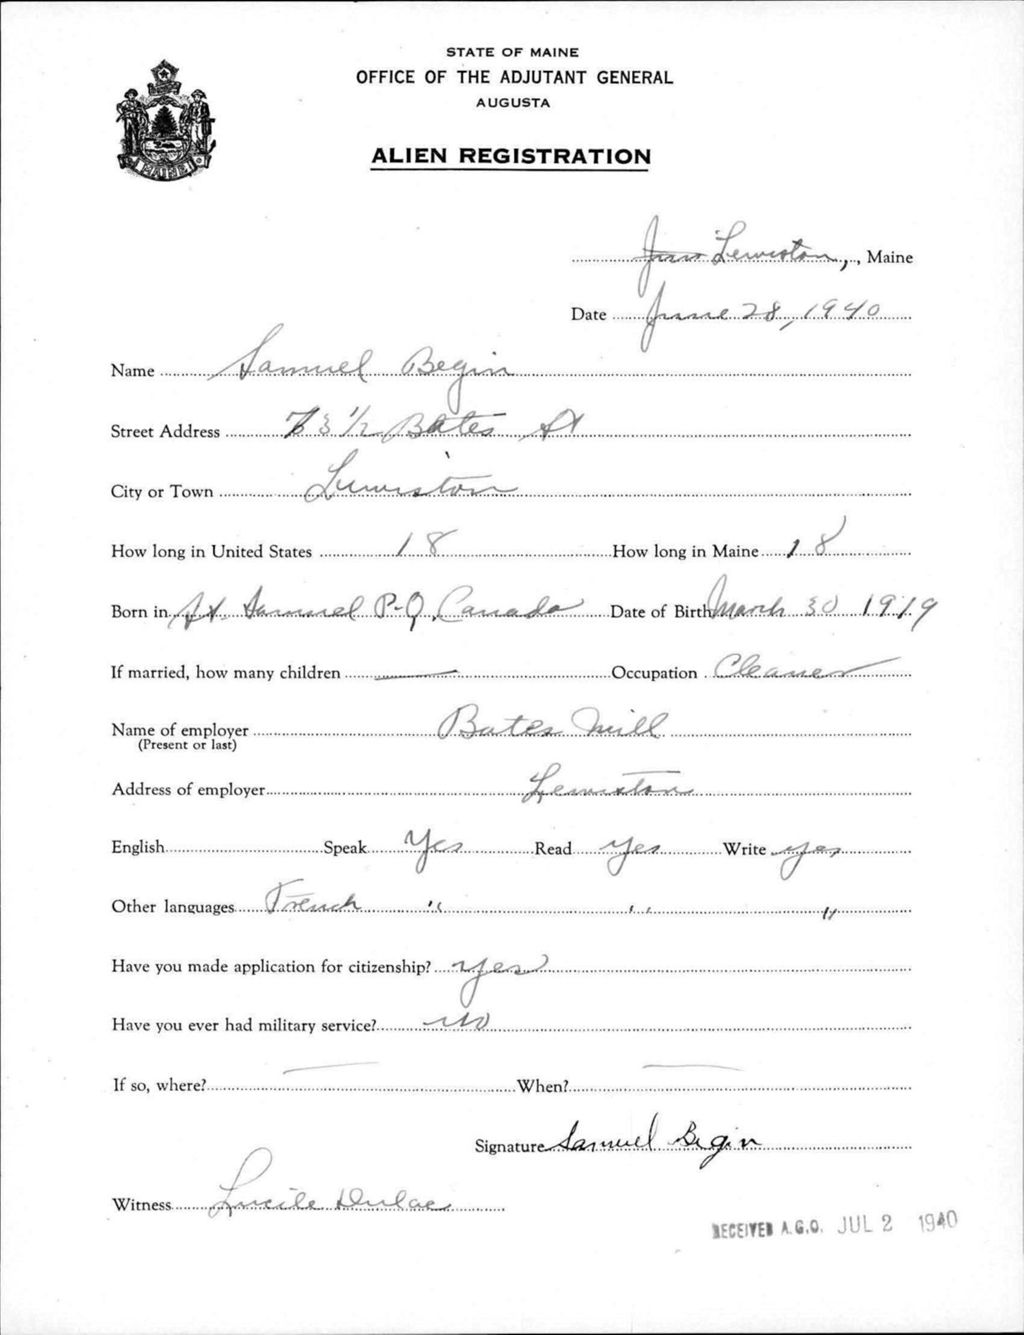 STATE OF MAINE
OFFICE OF THE ADJUTANT GENERAL
AUGUSTA
ALIEN REGISTRATION
MAINE
Lewiston, Maine
Date June 28, 1940
Name Samuel Begin
Street Address 73 1/2 Bates St
City or Town Lewiston
How long in United States 18 How long in Maine 18
Born in St. Samuel P-Q, Canada Date of Birth March 30 1919
If married, how many children — Occupation Cleaner
Name of employer Bates Mill
(Present or last)
Address of employer Lewiston
English Speak Yes Read Yes Write yes
Other languages French " " "
Have you made application for citizenship? yes
Have you ever had military service? no
If so, where? — When? —
Signature Samuel Begin
Witness Lucile Dulac
RECEIVED A.G.O. JUL 2 1940